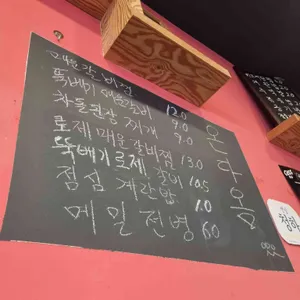 매운갈비찜 12.0
뚝배기 매운갈비 9.0
차돌된장찌개 9.0
로제매운갈비찜 13.0
뚝배기로제갈비 10.5
점심 계란밥 1.0
메밀전병 6.0
온다옴
청하